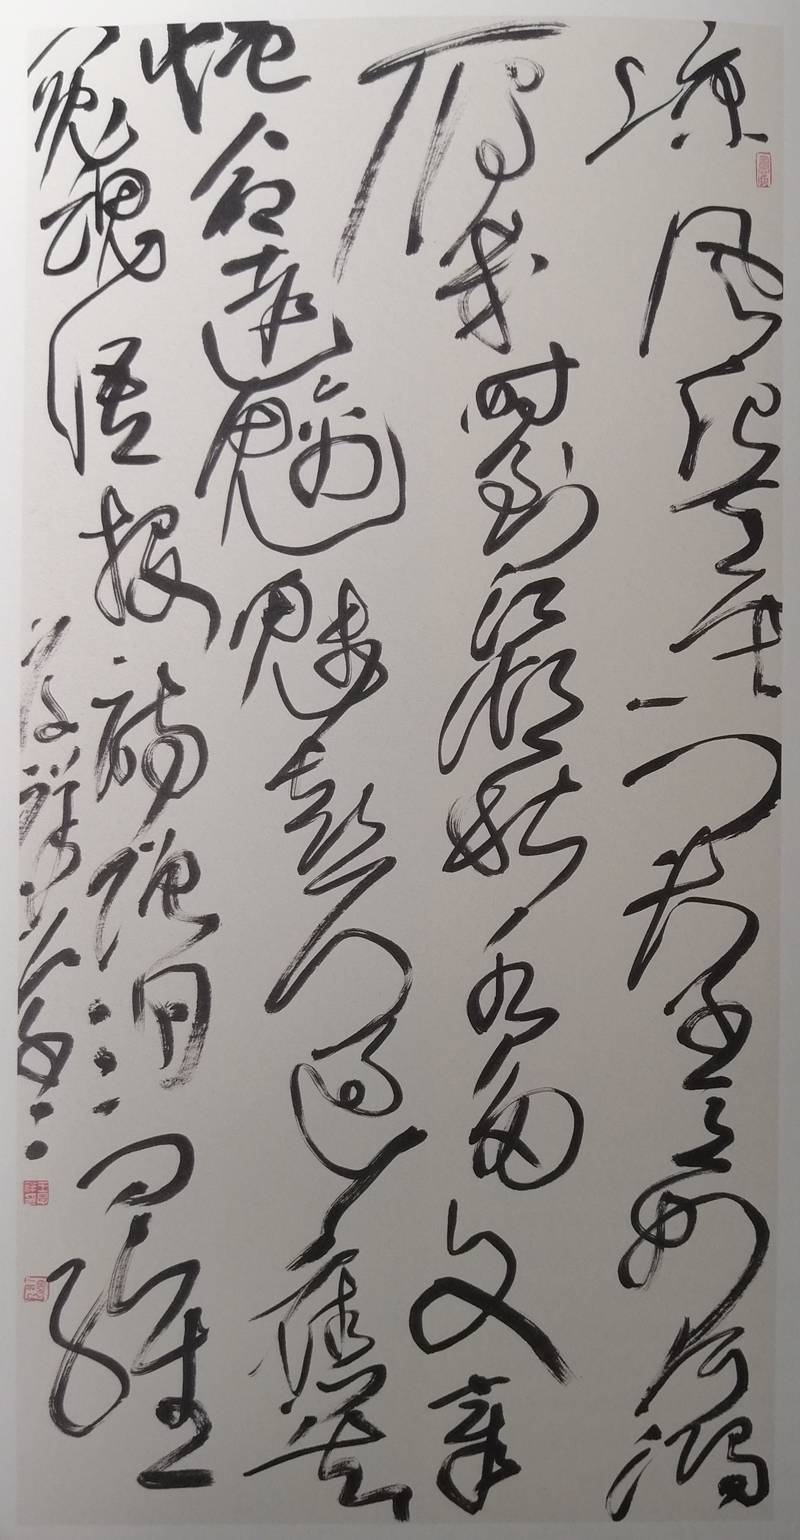 凉风起天末君子意如何鸿
雁几时到江湖秋水多文章
憎命达魑魅喜人过应共
冤魂语投诗赠汨罗